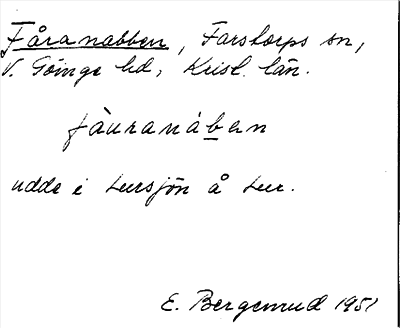 Fåranabben, Farstorps sn,
V. Göinge hd, Krist. län.
fåuranáben
udde i Lursjön å Lur.
E. Bergenrud 1951